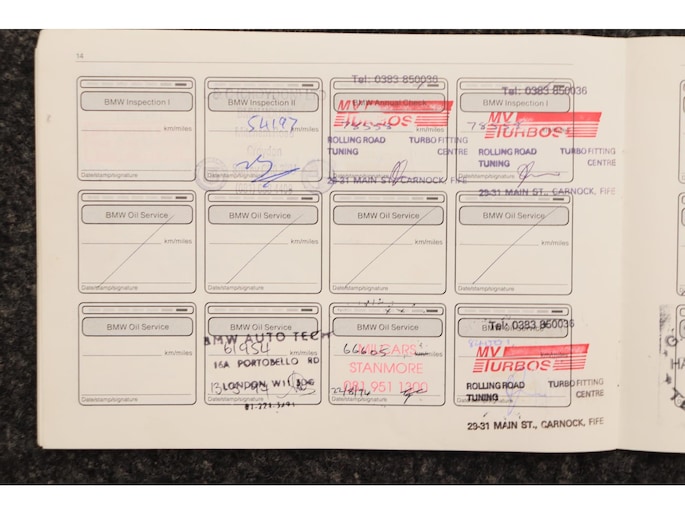 14
BMW Inspection I
km/miles
Date/stamp/signature
BMW Inspection II
54197
km/miles
Date/stamp/signature
Tel: 0383 850036
BMW Annual Check
MV
TURBOS
km/miles
ROLLING ROAD TURBO FITTING
TUNING CENTRE
Date/stamp/signature
29-31 MAIN ST., CARNOCK, FIFE
Tel: 0383 850036
BMW Inspection I
MV
TURBOS
ROLLING ROAD TURBO FITTING
TUNING CENTRE
Date/stamp/signature
29-31 MAIN ST., CARNOCK, FIFE
BMW Oil Service
km/miles
Date/stamp/signature
BMW Oil Service
km/miles
Date/stamp/signature
BMW Oil Service
km/miles
Date/stamp/signature
BMW Oil Service
km/miles
Date/stamp/signature
BMW Oil Service
km/miles
Date/stamp/signature
BMW Oil Service
BMW AUTO TECH
61954
16A PORTOBELLO RD
LONDON W11
BMW Oil Service
66605
STANMORE
081 951 1300
Date/stamp/signature
Tel: 0383 850036
BMW Oil Service
MV
TURBOS
ROLLING ROAD TURBO FITTING
TUNING CENTRE
29-31 MAIN ST., CARNOCK, FIFE